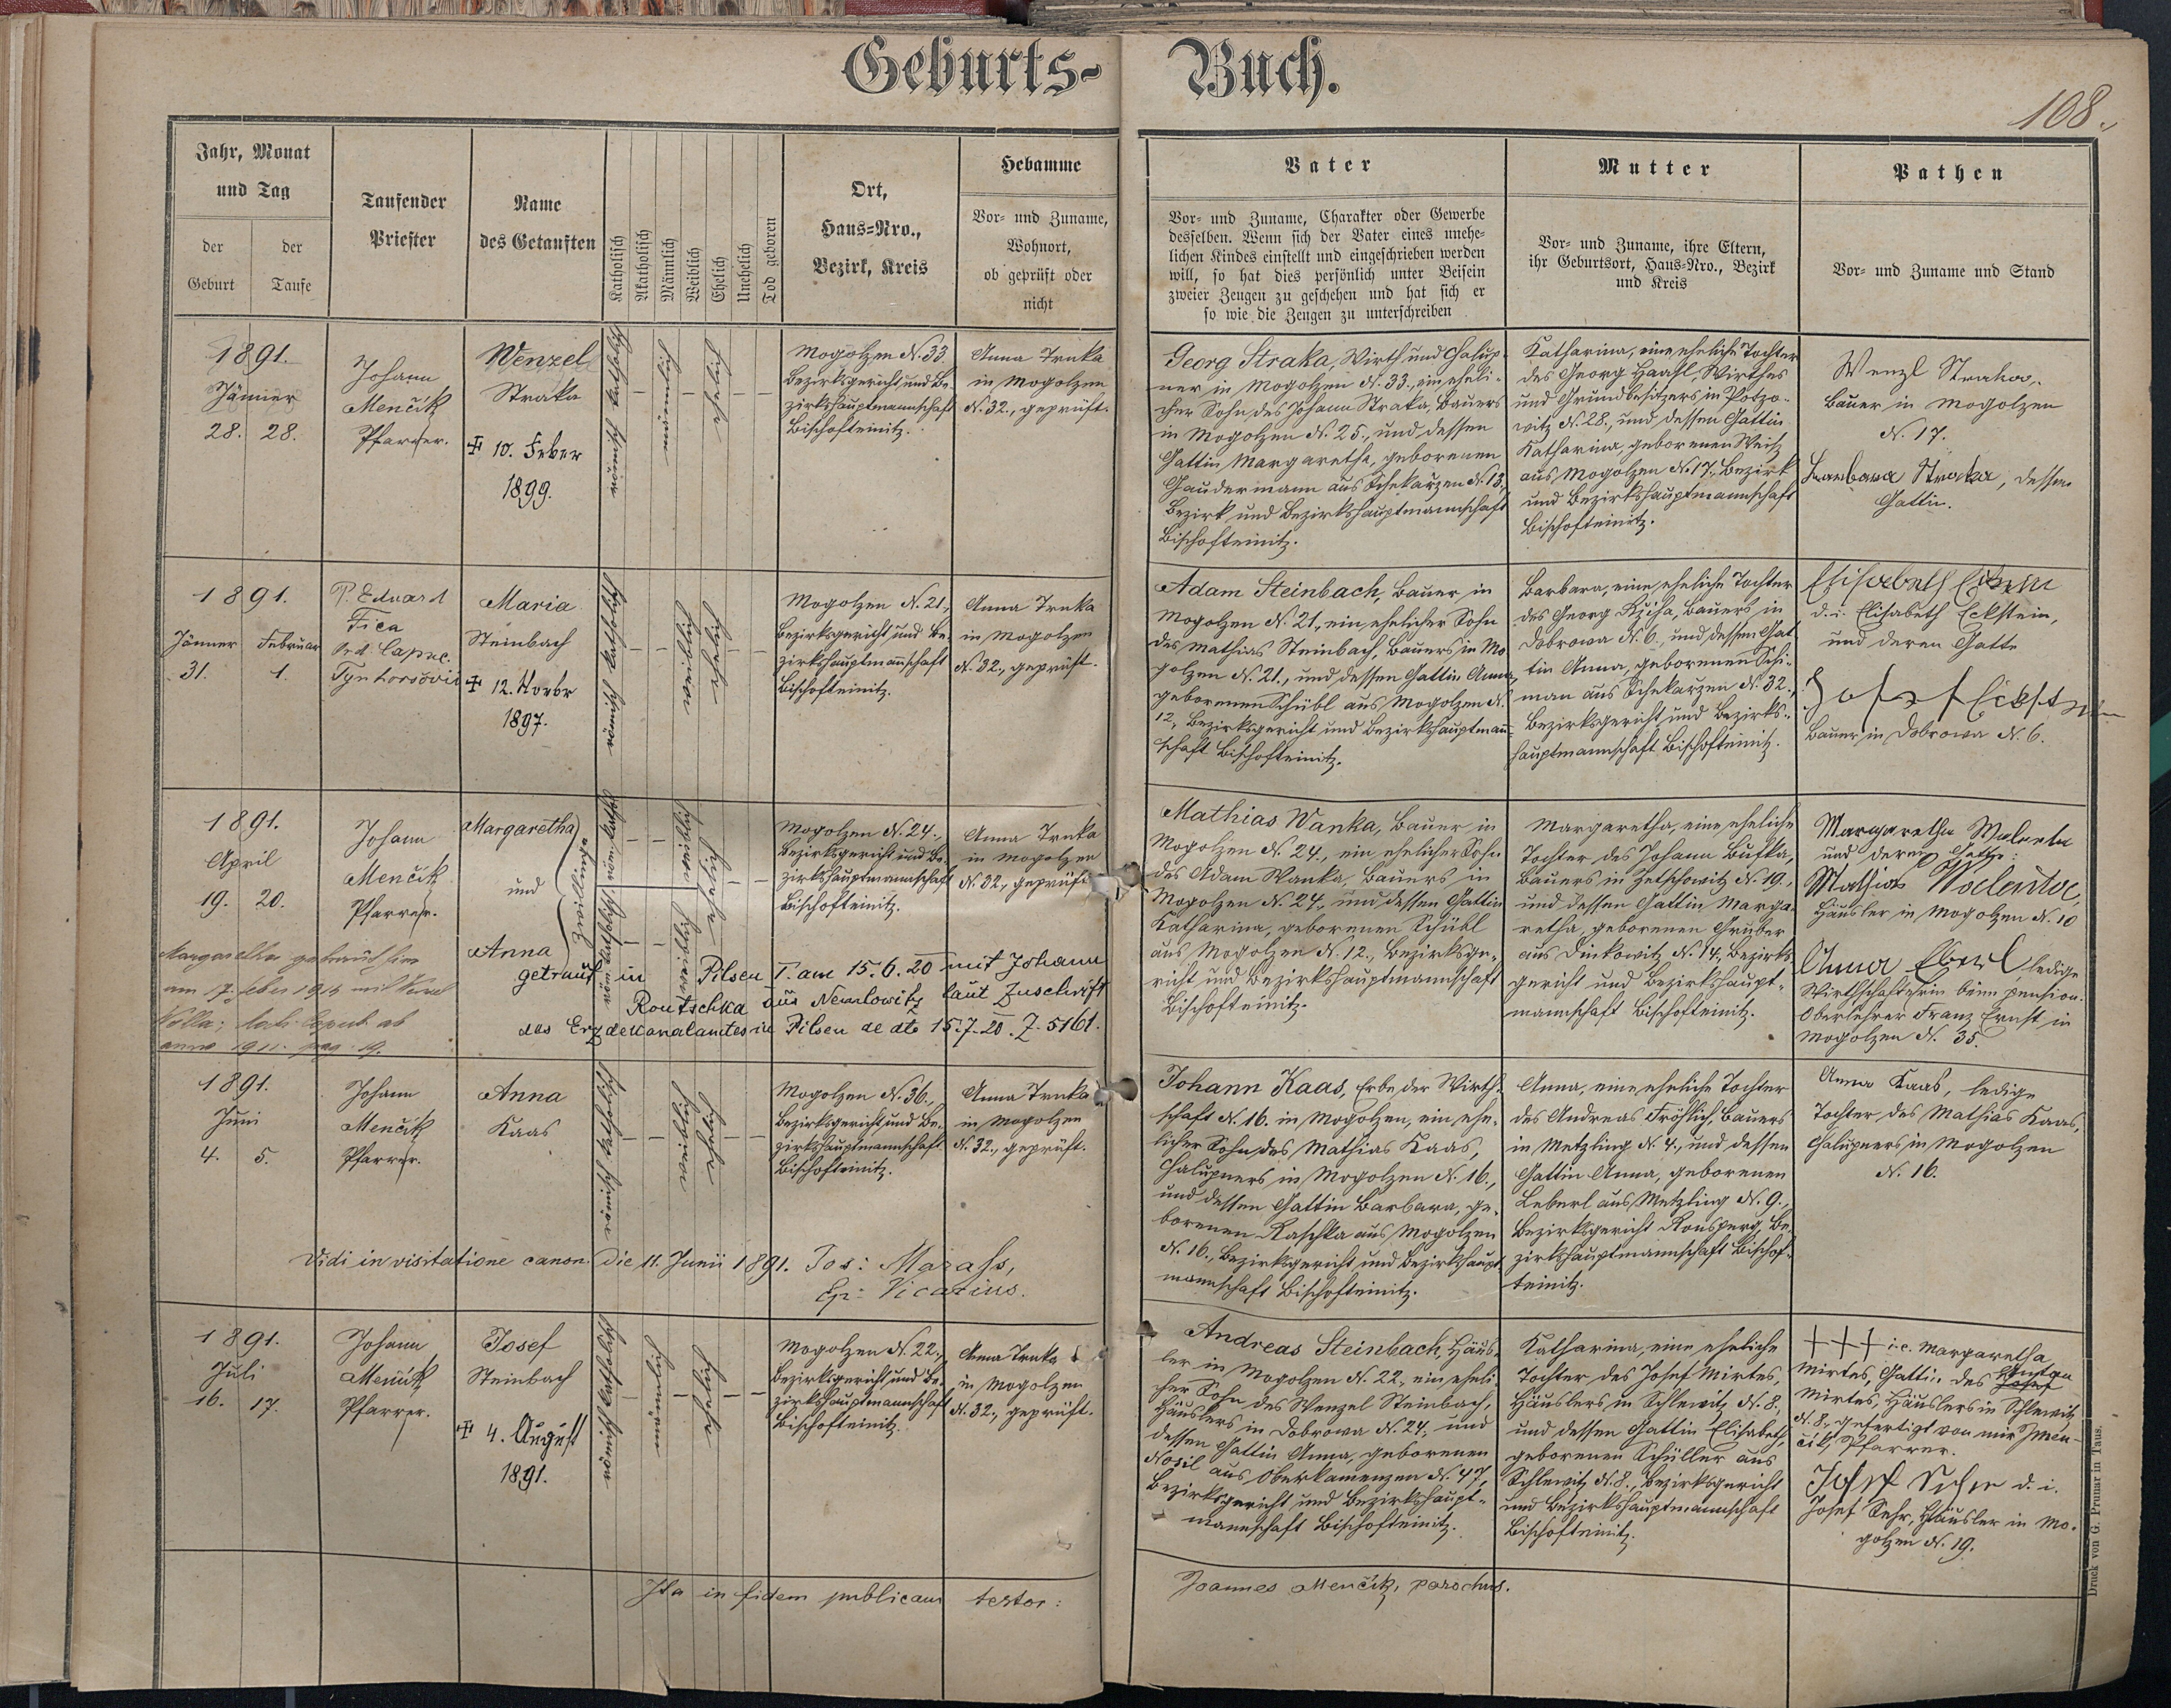 Geburts- Buch.
108.
Jahr, Monat
und Tag
der
Geburt
der
Taufe
Taufender
Priester
Name
des Getauften
Katholisch
Akatholisch
Männlich
Weiblich
Ehelich
Unehelich
Tod geboren
Ort,
Haus-Nro.,
Bezirk, Kreis
Hebamme
Vor- und Zuname,
Wohnort,
ob geprüft oder
nicht
Vater
Vor- und Zuname, Charakter oder Gewerbe
desselben. Wenn sich der Vater eines unehe-
lichen Kindes einstellt und eingeschrieben werden
will, so hat dies persönlich unter Beisein
zweier Zeugen zu geschehen und hat sich er
so wie die Zeugen zu unterschreiben
Mutter
Vor- und Zuname, ihre Eltern,
ihr Geburtsort, Haus-Nro., Bezirk
und Kreis
Pathen
Vor- und Zuname und Stand
1891.
Jänner
28. 28.
Johann
Menčik
Pfarrer.
Wenzel
Straka
✠ 10. Feber
1899.
römisch katholisch
männlich
ehelich
Mogolzen N. 33.
Bezirksgericht und Be-
zirkshauptmannschaft
Bischofteinitz.
Anna Trnka
in Mogolzen
N. 32., geprüft.
Georg Straka, Wirth und Chalup-
ner in Mogolzen N. 33., ein eheli-
cher Sohn des Johann Straka, Bauers
in Mogolzen N. 25., und dessen
Gattin Margaretha, geborenen
Gaudermann aus Schekarzen N. 13.,
Bezirk und Bezirkshauptmannschaft
Bischofteinitz.
Katharina, eine eheliche Tochter
des Georg Haasl, Wirthes
und Grundbesitzers in Potzo-
witz N. 28., und dessen Gattin
Katharina, geborenen Weiß
aus Mogolzen N. 17., Bezirk
und Bezirkshauptmannschaft
Bischofteinitz.
Wenzl Straka,
Bauer in Mogolzen
N. 17.
Barbara Straka, dessen
Gattin.
1891.
Jänner Februar
31. 1.
P. Eduard
Fica
Ord. Capuc.
Tynhoršovii
Maria
Steinbach
✠ 12. Novbr
1897.
römisch katholisch
weiblich
ehelich
Mogolzen N. 21.,
Bezirksgericht und Be-
zirkshauptmannschaft
Bischofteinitz.
Anna Trnka
in Mogolzen
N. 32., geprüft.
Adam Steinbach, Bauer in
Mogolzen N. 21., ein ehelicher Sohn
des Mathias Steinbach, Bauers in Mo-
golzen N. 21., und dessen Gattin Anna,
geborenen Schübl aus Mogolzen N.
12., Bezirksgericht und Bezirkshauptmann-
schaft Bischofteinitz.
Barbara, eine eheliche Tochter
des Georg Bziha, Bauers in
Dobrowa N. 6., und dessen Gat-
tin Anna, geborenen Schi-
man aus Schekarzen N. 32.,
Bezirksgericht und Bezirks-
hauptmannschaft Bischofteinitz.
Elisabeth Eckstein
d. i. Elisabeth Eckstein,
und deren Gatte
Josef Eckstein
Bauer in Dobrowa N. 6.
1891.
April
19. 20.
Johann
Menčik
Pfarrer.
Margaretha
und
Anna
Zwillinge
röm. kathol.
röm. katholisch
weiblich
weiblich
ehelich
ehelich
Mogolzen N. 24.,
Bezirksgericht und Be-
zirkshauptmannschaft
Bischofteinitz.
Anna Trnka
in Mogolzen
N. 32., geprüft.
Mathias Wanka, Bauer in
Mogolzen N. 24., ein ehelicher Sohn
des Adam Wanka, Bauers in
Mogolzen N. 24., und dessen Gattin
Katharina, geborenen Schübl
aus Mogolzen N. 12., Bezirksge-
richt und Bezirkshauptmannschaft
Bischofteinitz.
Margaretha, eine eheliche
Tochter des Johann Bufka,
Bauers in Zetschowitz N. 19.,
und dessen Gattin Marga-
retha, geborenen Gruber
aus Dinkowitz N. 14., Bezirks-
gericht und Bezirkshaupt-
mannschaft Bischofteinitz.
Margaretha Walenta
und deren Gatte:
Mathias Walenta,
Häusler in Mogolzen N. 10
Anna Eberl ledige
Wirthschafterin beim pension.
Oberlehrer Franz Ernst in
Mogolzen N. 35.
Margaretha getraut hier
am 17. Feber 1914 mit
anno 1911. pag. 19.
getraut in Pilsen I. am 15.6.20 mit Johann
Routschka aus Nemlowitz laut Zuschrift
des Erzdekanalamtes in Pilsen de dto 15.7.20. Z. 5161.
1891.
Juni
4. 5.
Johann
Menčik
Pfarrer.
Anna
Kaas
römisch katholisch
weiblich
ehelich
Mogolzen N. 36.,
Bezirksgericht und Be-
zirkshauptmannschaft
Bischofteinitz.
Anna Trnka
in Mogolzen
N. 32., geprüft.
Johann Kaas, Erbe der Wirth-
schaft N. 16. in Mogolzen, ein ehe-
licher Sohn des Mathias Kaas,
Chalupners in Mogolzen N. 16.,
und dessen Gattin Barbara, ge-
borenen Raschka aus Mogolzen
N. 16., Bezirksgericht und Bezirkshaupt-
mannschaft Bischofteinitz.
Anna, eine eheliche Tochter
des Andreas Fröhlich, Bauers
in Metzling N. 4., und dessen
Gattin Anna, geborenen
Leberl aus Metzling N. 9.,
Bezirksgericht Ronsperg, Be-
zirkshauptmannschaft Bischof-
teinitz.
Anna Kaas, ledige
Tochter des Mathias Kaas,
Chalupners in Mogolzen
N. 16.
Vidi in visitatione canon. die 11. Junii 1891. Jos: Marass,
Ep: Vicarius.
1891.
Juli
16. 17.
Johann
Menčik
Pfarrer.
Josef
Steinbach
✠ 4. August
1891.
römisch katholisch
männlich
ehelich
Mogolzen N. 22.,
Bezirksgericht und Be-
zirkshauptmannschaft
Bischofteinitz.
Anna Trnka
in Mogolzen
N. 32., geprüft.
Andreas Steinbach, Häus-
ler in Mogolzen N. 22., ein eheli-
cher Sohn des Wenzel Steinbach,
Häuslers in Dobrowa N. 24., und
dessen Gattin Anna, geborenen
Nosil aus Oberkamenzen N. 47,
Bezirksgericht und Bezirkshaupt-
mannschaft Bischofteinitz.
Katharina, eine eheliche
Tochter des Josef Mirtes,
Häuslers in Schlewitz N. 8.,
und dessen Gattin Elisabeth,
geborenen Schüller aus
Schlewitz N. 8., Bezirksgericht
und Bezirkshauptmannschaft
Bischofteinitz.
+++ i.e. Margaretha
Mirtes, Gattin des Josef
Mirtes, Häuslers in Schlewitz
N. 8., gefertigt von mir J Men-
čik, Pfarrer.
Josef Sehr d. i.
Josef Sehr, Häusler in Mo-
golzen N. 19.
Ita in fidem publicam testor:
Joannes Menčik, parochus.
Druck von G. Prunar in Taus.